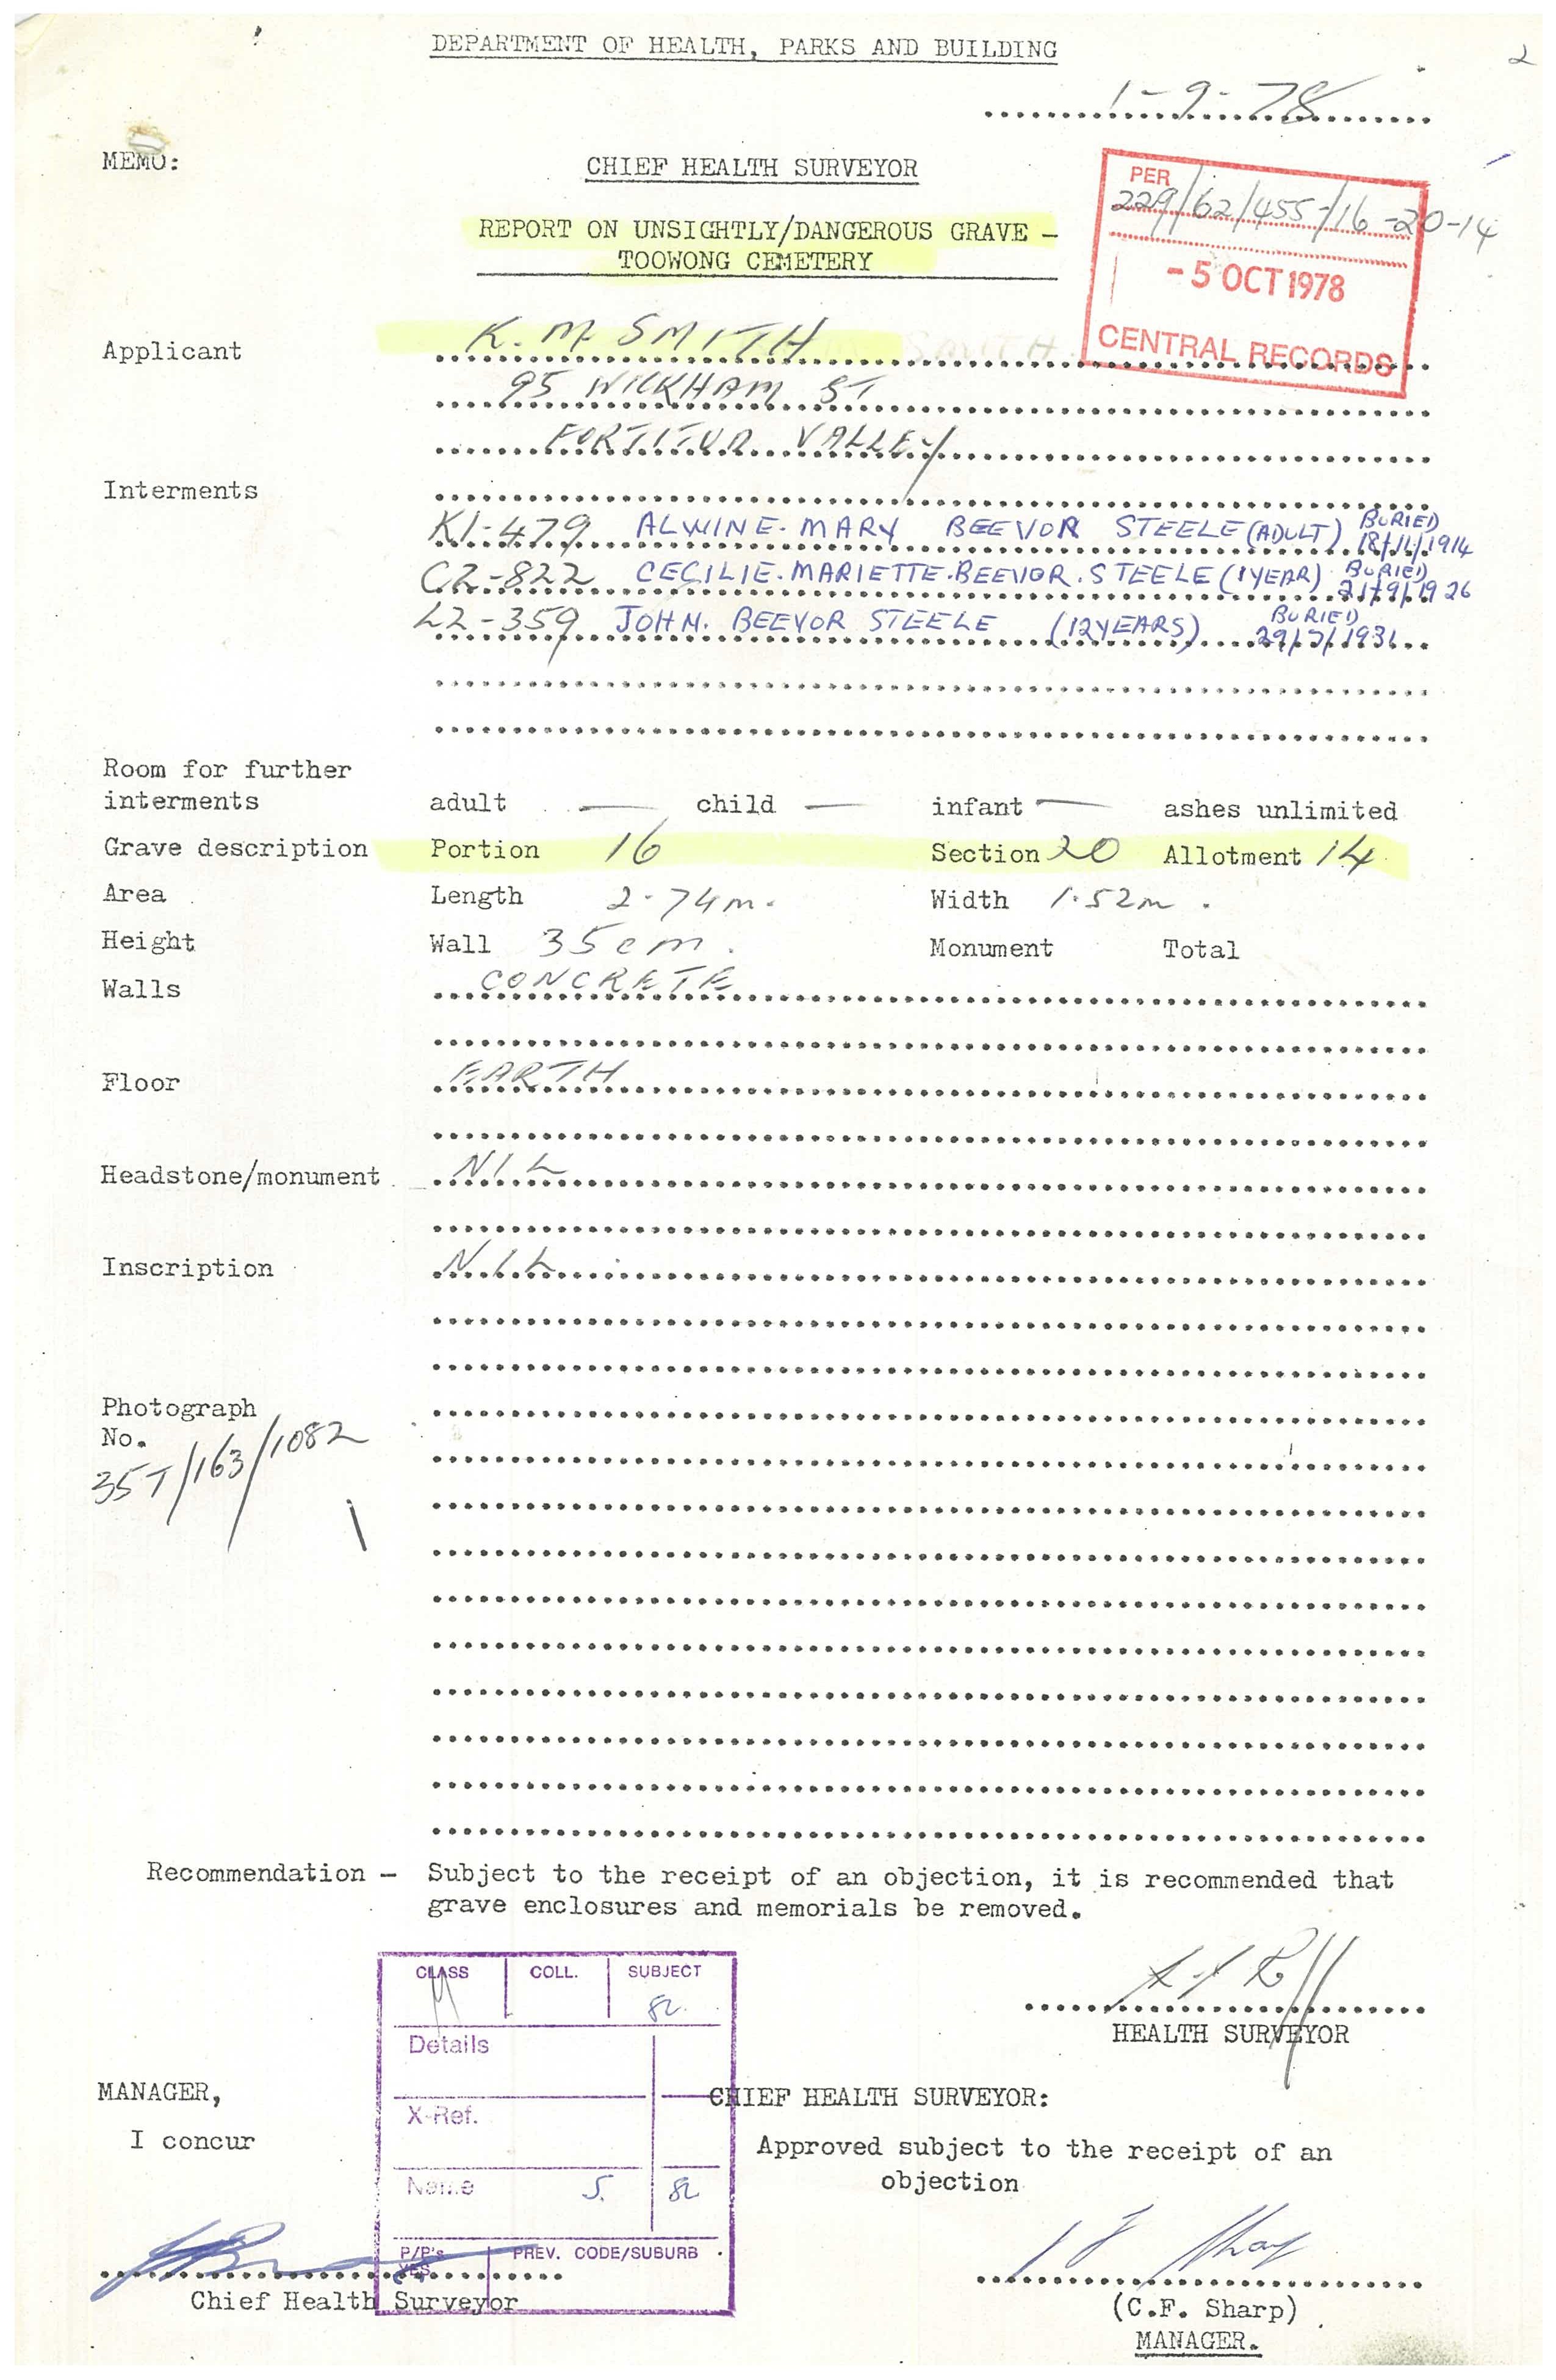 DEPARTMENT OF HEALTH, PARKS AND BUILDING
2
1-9-78
MEMO:
CHIEF HEALTH SURVEYOR
PER
229/62/455/16-20-14
- 5 OCT 1978
CENTRAL RECORDS
REPORT ON UNSIGHTLY/DANGEROUS GRAVE -
TOOWONG CEMETERY
Applicant K. M. SMITH
95 WICKHAM ST
FORTITUD VALLEY
Interments
K1-479 ALWINE. MARY BEEVOR STEELE (ADULT) BURIED 18/11/1914
C2-822 CECILIE. MARIETTE. BEEVOR. STEELE (1YEAR) BURIED 21/9/1926
L2-359 JOHN. BEEVOR STEELE (12YEARS) BURIED 29/7/1931
Room for further
interments adult — child — infant — ashes unlimited
Grave description Portion 16 Section 20 Allotment 14
Area Length 2.74m. Width 1.52m.
Height Wall 35cm. Monument Total
Walls CONCRETE
Floor EARTH
Headstone/monument NIL
Inscription NIL
Photograph
No.
35T/163/1082
Recommendation - Subject to the receipt of an objection, it is recommended that
grave enclosures and memorials be removed.
HEALTH SURVEYOR
CLASS COLL. SUBJECT
82.
Details
X-Ref.
Name S. 82
P/P's PREV. CODE/SUBURB
YES
MANAGER,
I concur
Chief Health Surveyor
CHIEF HEALTH SURVEYOR:
Approved subject to the receipt of an
objection
(C.F. Sharp)
MANAGER.